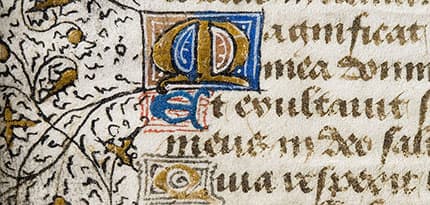 Magnificat
mea domi
Et exultauit
meus in deo sal
Quia respexit